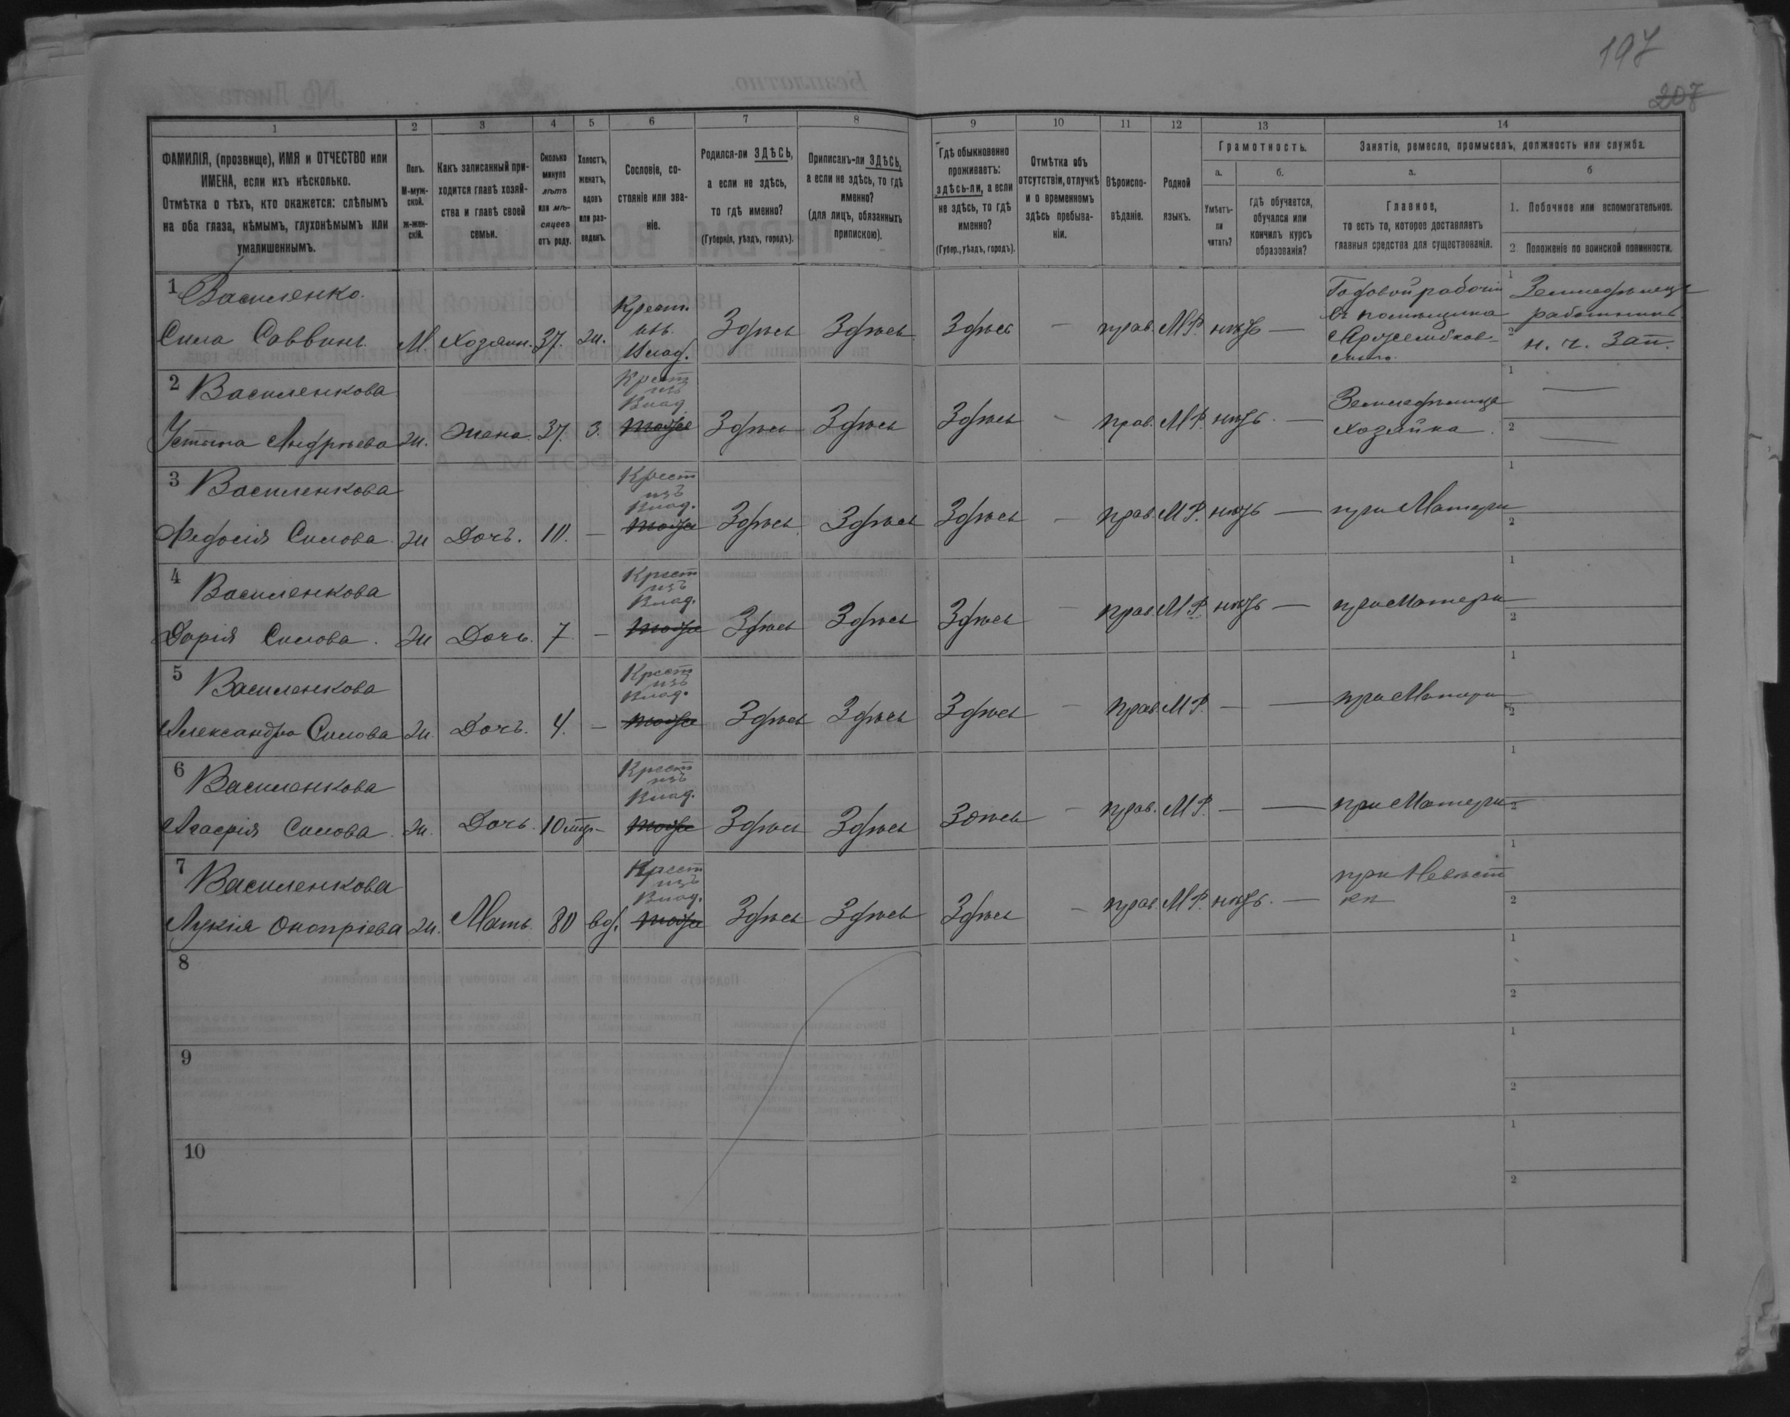 197
207
Безплатно.
№ Листа
1 2 3 4 5 6 7 8 9 10 11 12 13 14
ФАМИЛІЯ, (прозвище), ИМЯ и ОТЧЕСТВО или ИМЕНА, если ихъ нѣсколько.
Отмѣтка о тѣхъ, кто окажется: слѣпымъ на оба глаза, нѣмымъ, глухонѣмымъ или умалишеннымъ.
Полъ. М-муж-ской. ж-жен-скій.
Какъ записанный при-ходится главѣ хозяй-ства и главѣ своей семьи.
Сколько минуло лѣтъ или мѣ-сяцевъ отъ роду.
Холостъ, женатъ, вдовъ или раз-веденъ.
Сословіе, со-стояніе или зва-ніе.
Родился-ли ЗДѢСЬ, а если не здѣсь, то гдѣ именно?
(Губернія, уѣздъ, городъ).
Приписанъ-ли ЗДѢСЬ, а если не здѣсь, то гдѣ именно?
(для лицъ, обязанныхъ припискою).
Гдѣ обыкновенно проживаетъ: здѣсь-ли, а если не здѣсь, то гдѣ именно?
(Губер., уѣздъ, городъ).
Отмѣтка объ отсутствіи, отлучкѣ и о временномъ здѣсь пребыва-ніи.
Вѣроиспо-вѣданіе.
Родной языкъ.
Грамотность.
а. Умѣетъ-ли читать?
б. гдѣ обучается, обучался или кончилъ курсъ образованія?
Занятіе, ремесло, промыселъ, должность или служба.
а. Главное, то есть то, которое доставляетъ главныя средства для существованія.
б
1. Побочное или вспомогательное.
2 Положеніе по воинской повинности.
1 Василенко Сила Саввинъ М Хозяин. 37. ж. Крест. изъ Влад. Здѣсь Здѣсь Здѣсь — прав. М.Р. нѣтъ — Годовой рабочій помѣщика 1 Земледѣлецъ работникъ 2 н. ч. Зап.
2 Василенкова Устина Андрѣева ж. Жена 37. З. Крест изъ Влад тоже Здѣсь Здѣсь Здѣсь — прав. М.Р. нѣтъ. — Земледѣлица хозяйка. 1 — 2 —
3 Василенкова Федосія Силова ж Дочь. 10. — Крест изъ Влад. тоже Здѣсь Здѣсь Здѣсь — прав М.Р. нѣтъ — при Матери 1 2
4 Василенкова Дарія Силова. ж Дочь. 7 — Крест изъ Влад. тоже Здѣсь Здѣсь Здѣсь — прав М.Р. нѣтъ — при Матери 1 2
5 Василенкова Александра Силова ж. Дочь. 4. — Крест изъ Влад. тоже Здѣсь Здѣсь Здѣсь — прав. М.Р. — — при Матери 1 2
6 Василенкова Агафія Силова ж. Дочь. 10 мѣс — Крест изъ Влад. тоже Здѣсь Здѣсь Здѣсь — прав. М.Р. — — при Матери 1 2
7 Василенкова Лукія Оноприева ж. Мать. 80 вд. Крест изъ Влад. тоже Здѣсь Здѣсь Здѣсь — прав М.Р. нѣтъ. — при Невѣст кѣ 1 2
8 1 2
9 1 2
10 1 2